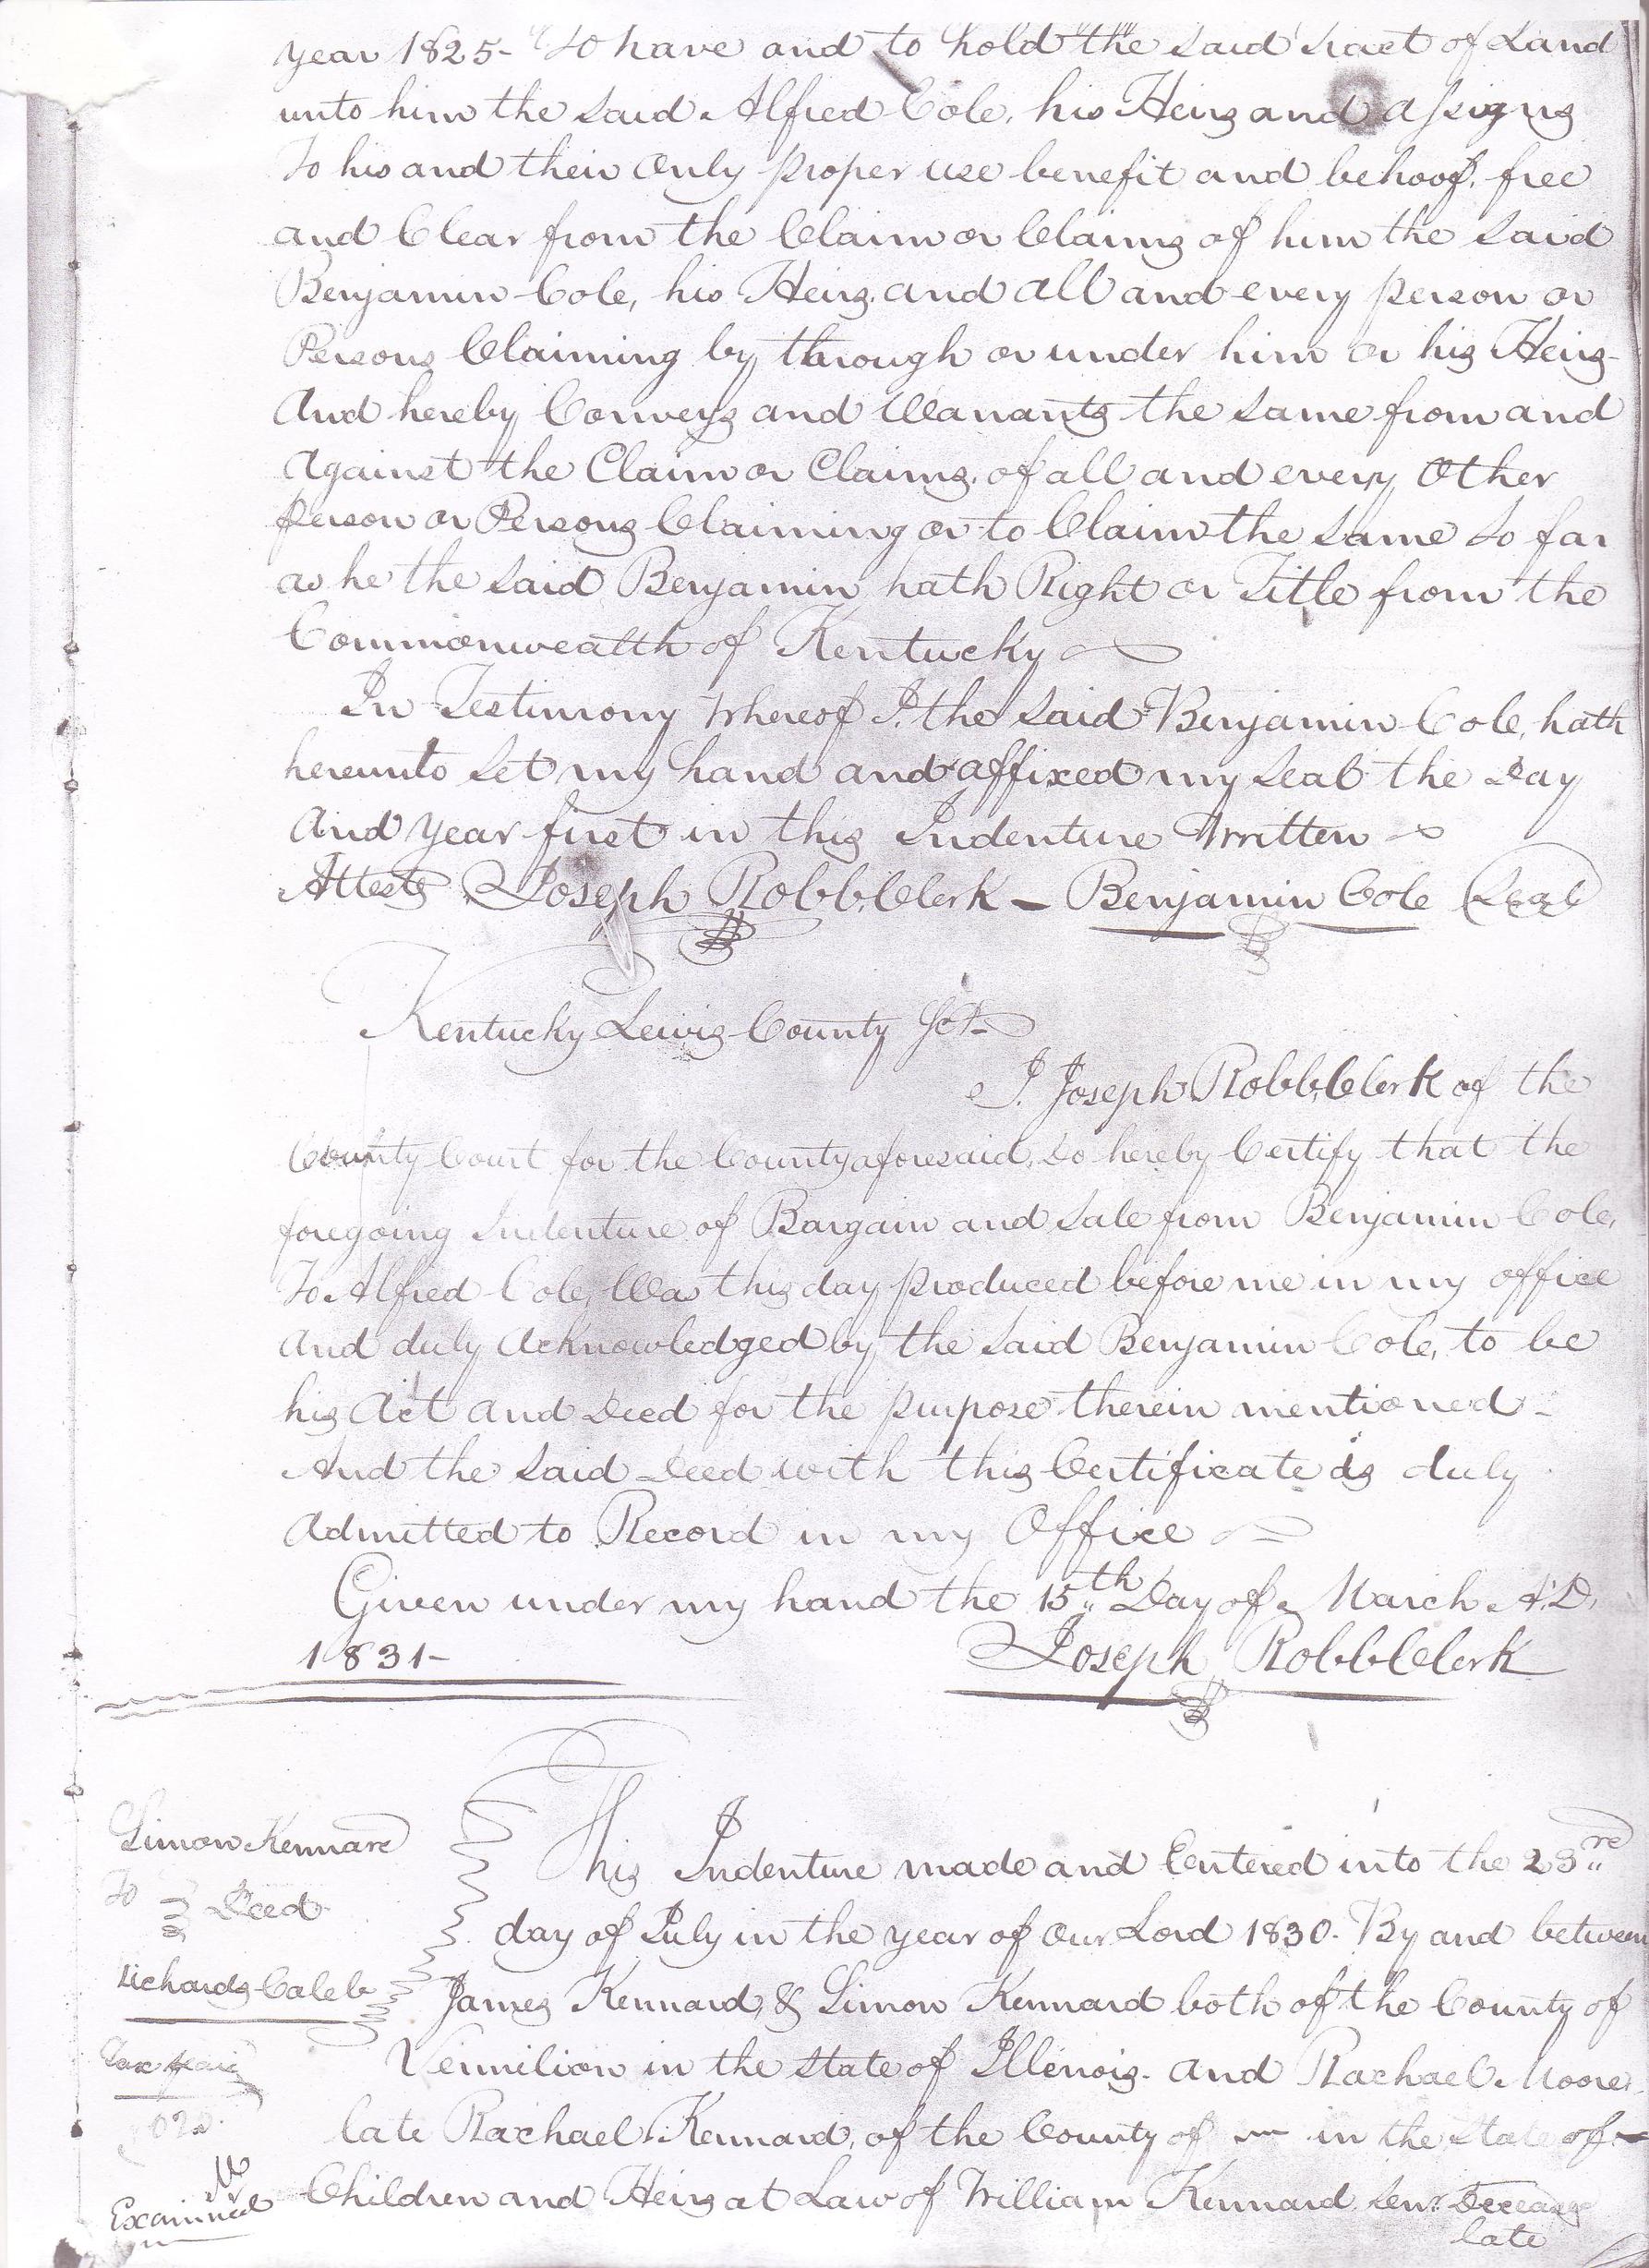 year 1825- To have and to hold the said tract of Land
unto him the said Alfred Cole, his Heirs and assigns
To his and their Only proper use benefit and behoof, free
and Clear from the Claim or Claims of him the said
Benjamin Cole, his Heirs, and all and every person or
Persons Claiming by through or under him or his Heirs-
And hereby Conveys and Warrants the same from and
Against the Claim or Claims, of all and every Other
person or Persons Claiming or to Claim the same so far
as he the said Benjamin hath Right or Title from the
Commonwealth of Kentucky
In Testimony Whereof I, the said Benjamin Cole, hath
hereunto set my hand and affixed my seal the Day
And year first in this Indenture Written
Atteste Joseph Robb, Clerk - Benjamin Cole (Seal)
Kentucky Lewis County Sct-
I, Joseph Robb, Clerk of the
County Court for the County aforesaid, do hereby Certify that the
foregoing Indenture of Bargain and Sale from Benjamin Cole,
To Alfred Cole, Was this day produced before me in my office
And duly Acknowledged by the said Benjamin Cole, to be
his Act and Deed for the purpose therein mentioned-
And the said Deed with this Certificate is duly
Admitted to Record in my Office
Given under my hand the 15th Day of March A.D.
1831-
Joseph Robb Clerk
Simon Kennard
To
Deed
Richards Caleb
Tax paid
Examined
This Indenture made and Entered into the 23rd
day of July in the year of Our Lord 1830. By and between
James Kennard, & Simon Kennard both of the County of
Vermilion in the state of Illinois. and Rachael Moore
late Rachael Kennard, of the County of — in the State of —
Children and Heirs at Law of William Kennard, Senr Deceas
late